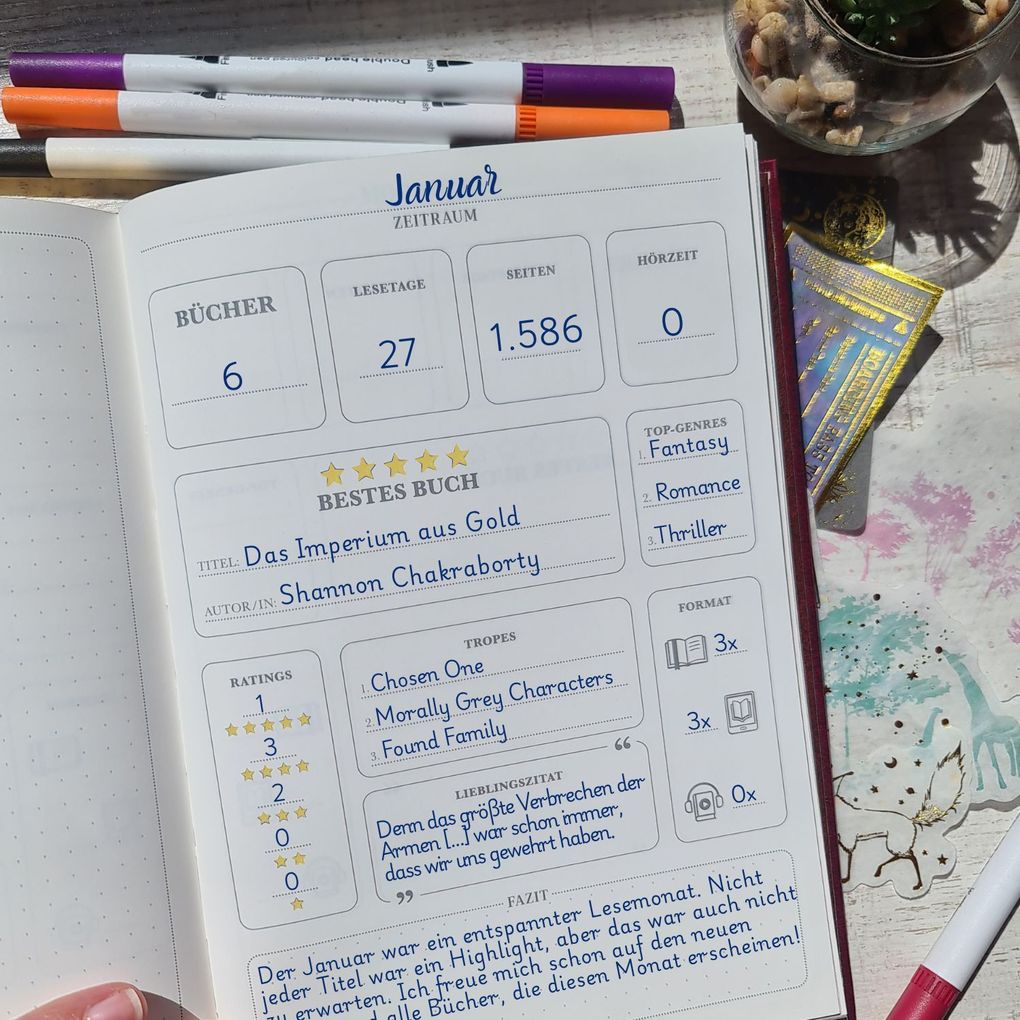 Double head
Double head
Januar
ZEITRAUM
BÜCHER
6
LESETAGE
27
SEITEN
1.586
HÖRZEIT
0
BESTES BUCH
TITEL: Das Imperium aus Gold
AUTOR/IN: Shannon Chakraborty
TOP-GENRES
1. Fantasy
2. Romance
3. Thriller
RATINGS
1
3
2
0
0
TROPES
1. Chosen One
2. Morally Grey Characters
3. Found Family
FORMAT
3x
3x
0x
LIEBLINGSZITAT
“
Denn das größte Verbrechen der
Armen [...] war schon immer,
dass wir uns gewehrt haben.
”
FAZIT
Der Januar war ein entspannter Lesemonat. Nicht
jeder Titel war ein Highlight, aber das war auch nicht
zu erwarten. Ich freue mich schon auf den neuen
alle Bücher, die diesen Monat erscheinen!
BOARDING PASS